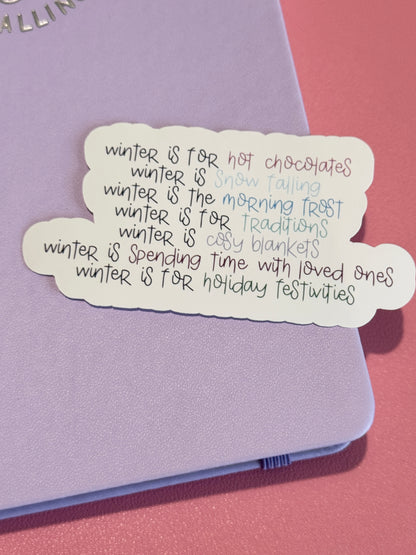 ALLING
winter is for hot chocolates
winter is snow falling
winter is the morning frost
winter is for traditions
winter is cosy blankets
winter is spending time with loved ones
winter is for holiday festivities